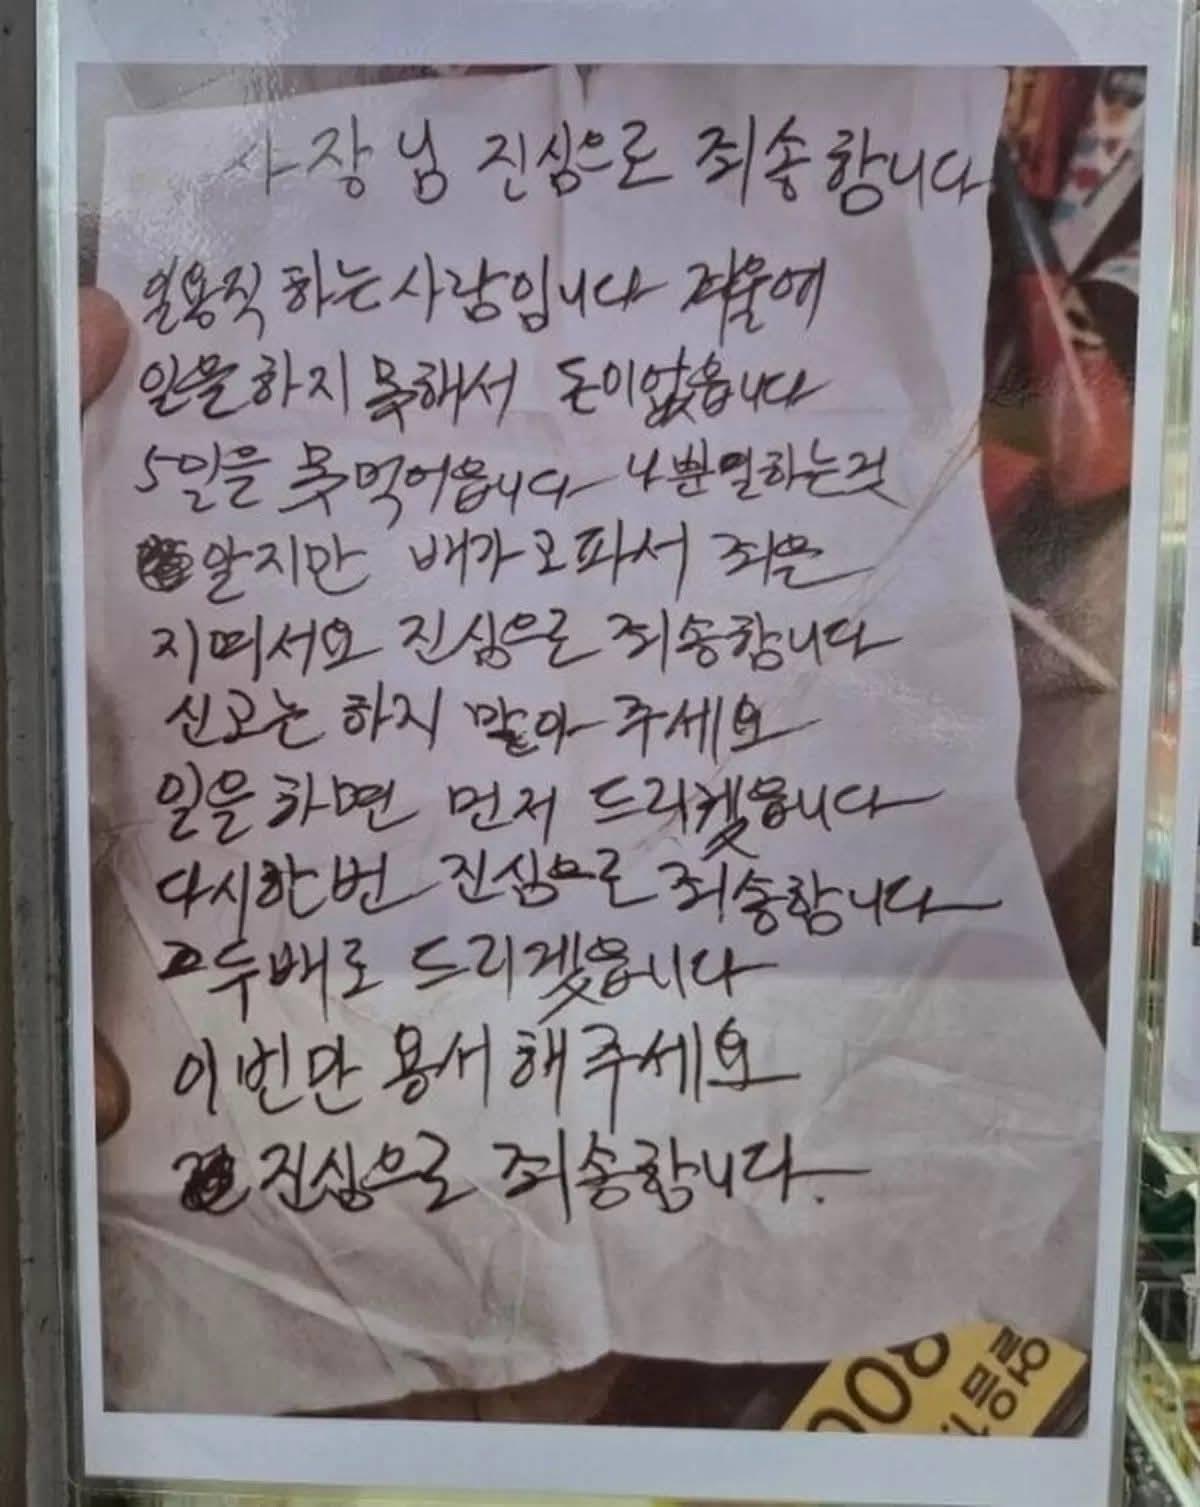 사장님 진심으로 죄송합니다
일용직 하는 사람입니다 겨울에
일을 하지 못해서 돈이 없읍니다
5일을 못 먹어읍니다 나쁜일하는것
알지만 배가 고파서 죄은
지며서요 진심으로 죄송합니다
신고는 하지 말아 주세요
일을 하면 먼저 드리켔읍니다
다시한번 진심으로 죄송합니다
두배로 드리겠읍니다
이번만 용서 해주세요
진심으로 죄송합니다.
008